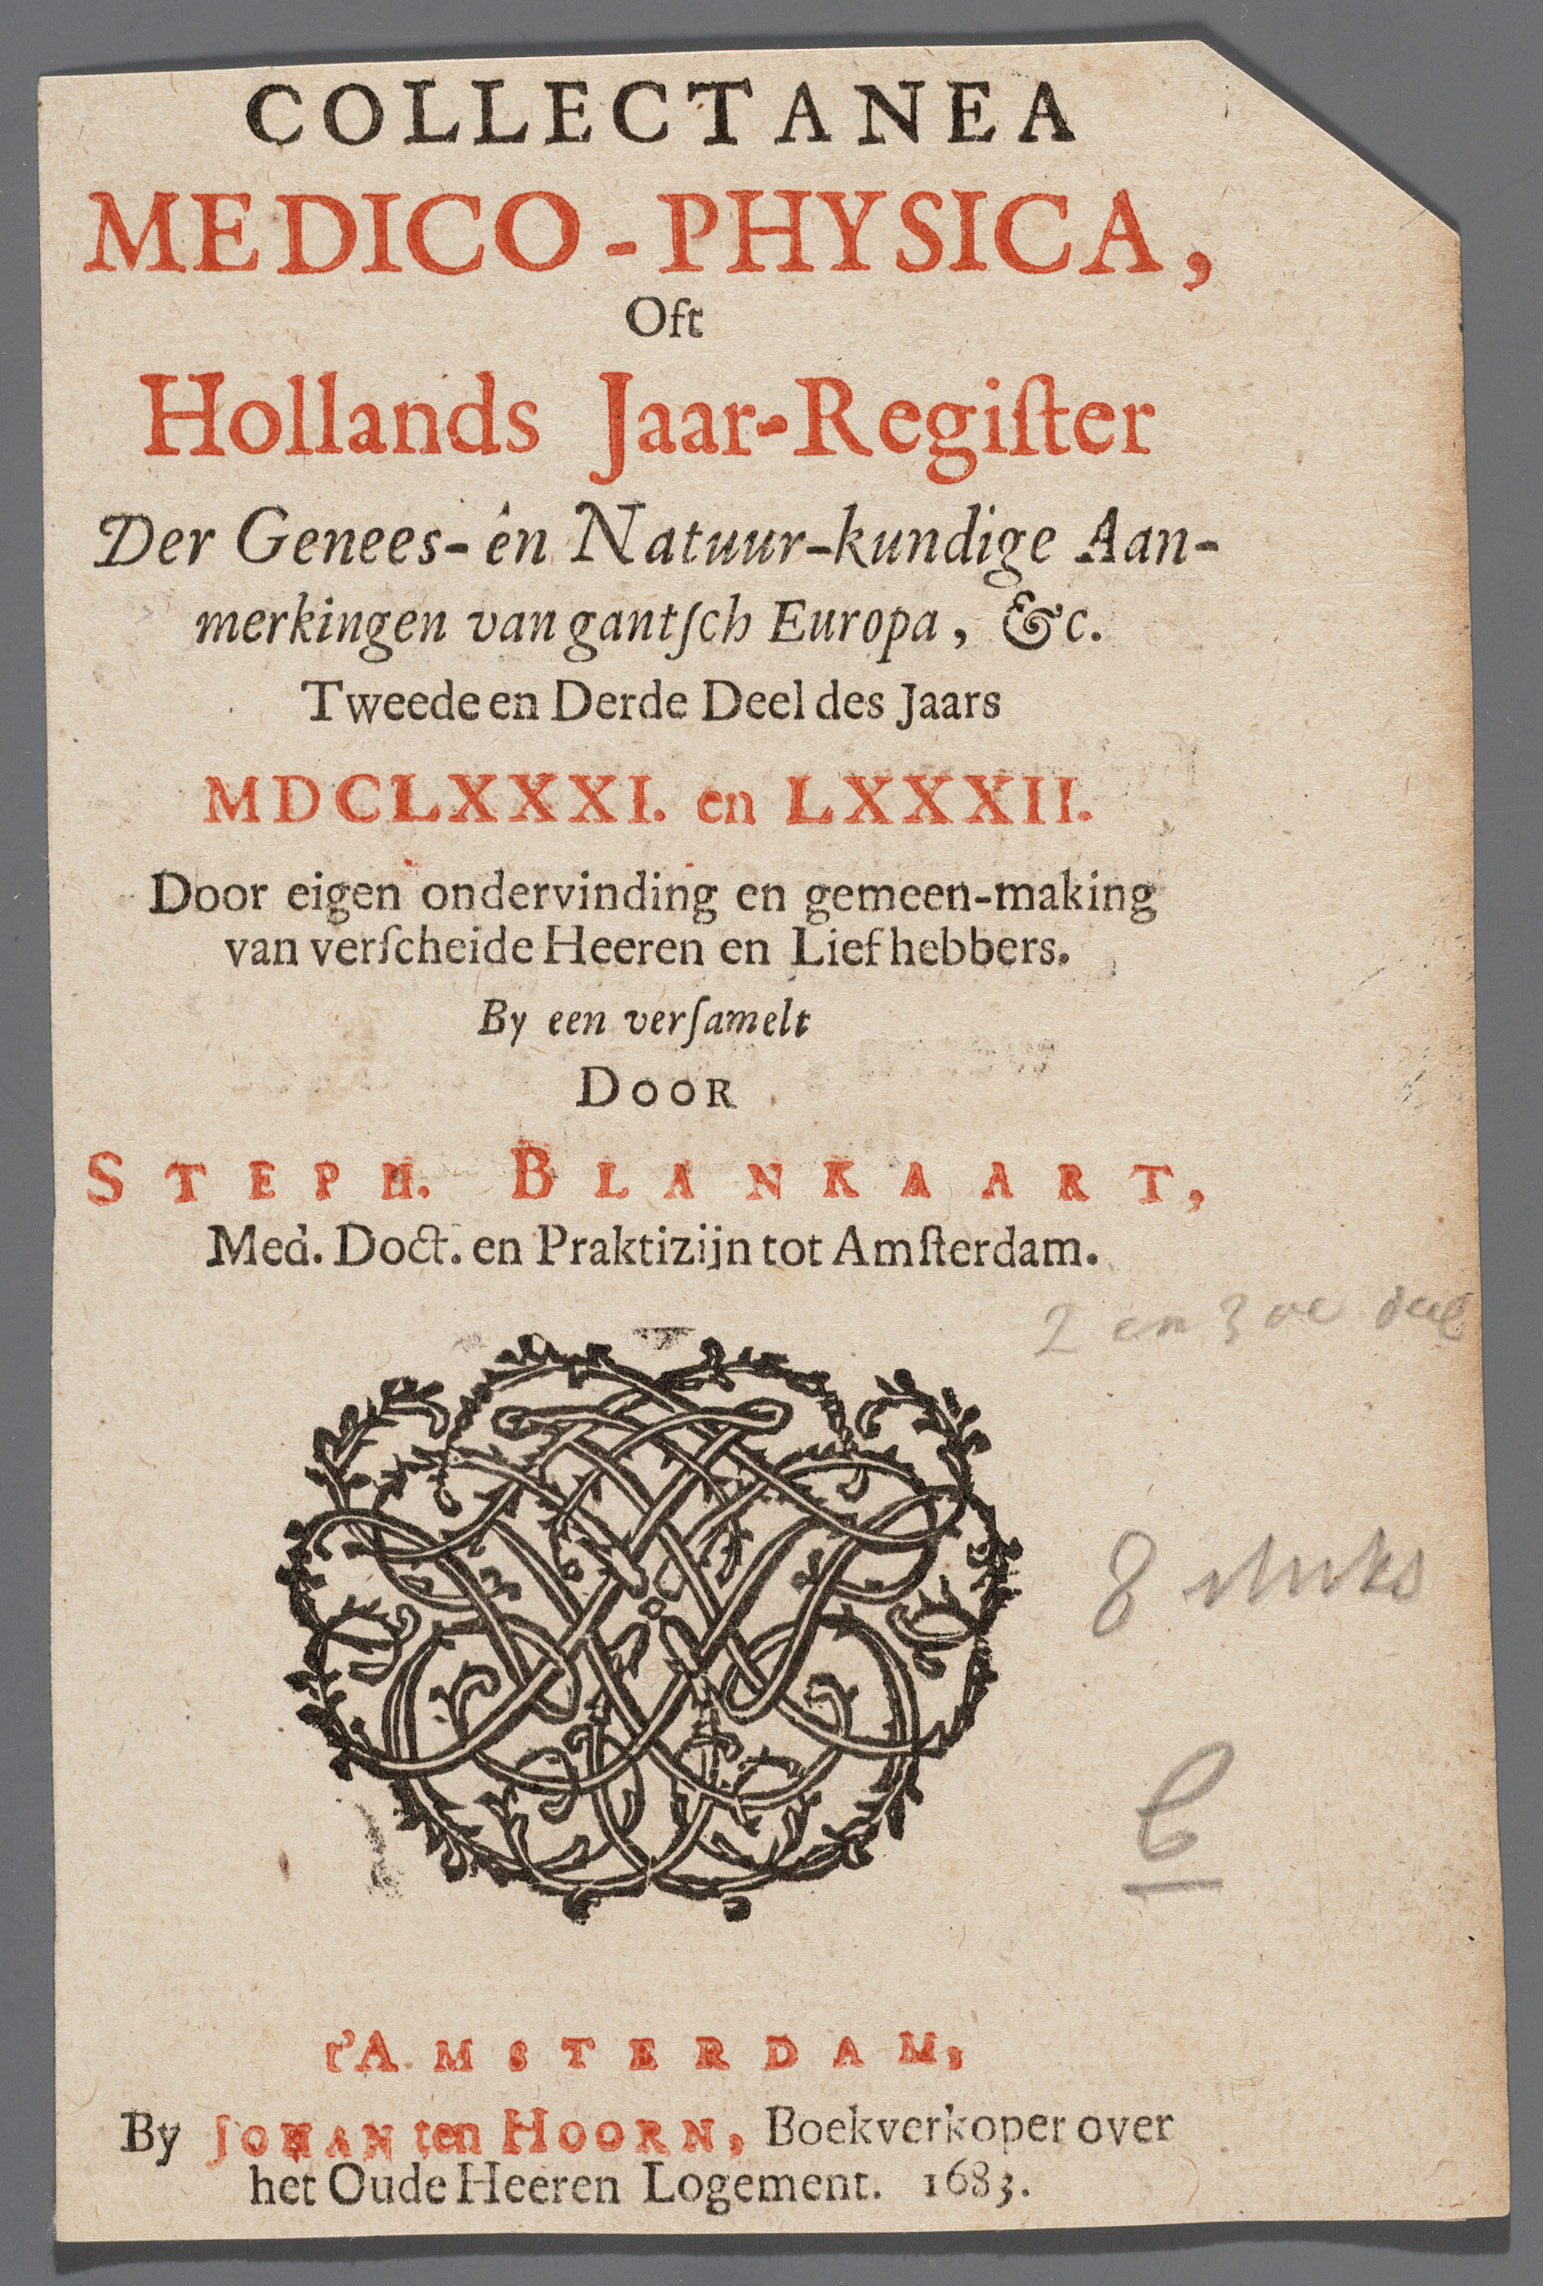 COLLECTANEA
MEDICO-PHYSICA,
Oft
Hollands Jaar-Regiſter
Der Genees- én Natuur-kundige Aan-
merkingen van gantſch Europa, &c.
Tweede en Derde Deel des Jaars
MDCLXXXI. en LXXXII.
Door eigen ondervinding en gemeen-making
van verſcheide Heeren en Liefhebbers.
By een verſamelt
DOOR
STEPH. BLANKAART,
Med. Doct. en Praktizijn tot Amſterdam.
2 en 3 de deel
8 stuks
t'AMSTERDAM,
By JOHAN ten HOORN, Boekverkoper over
het Oude Heeren Logement. 1683.